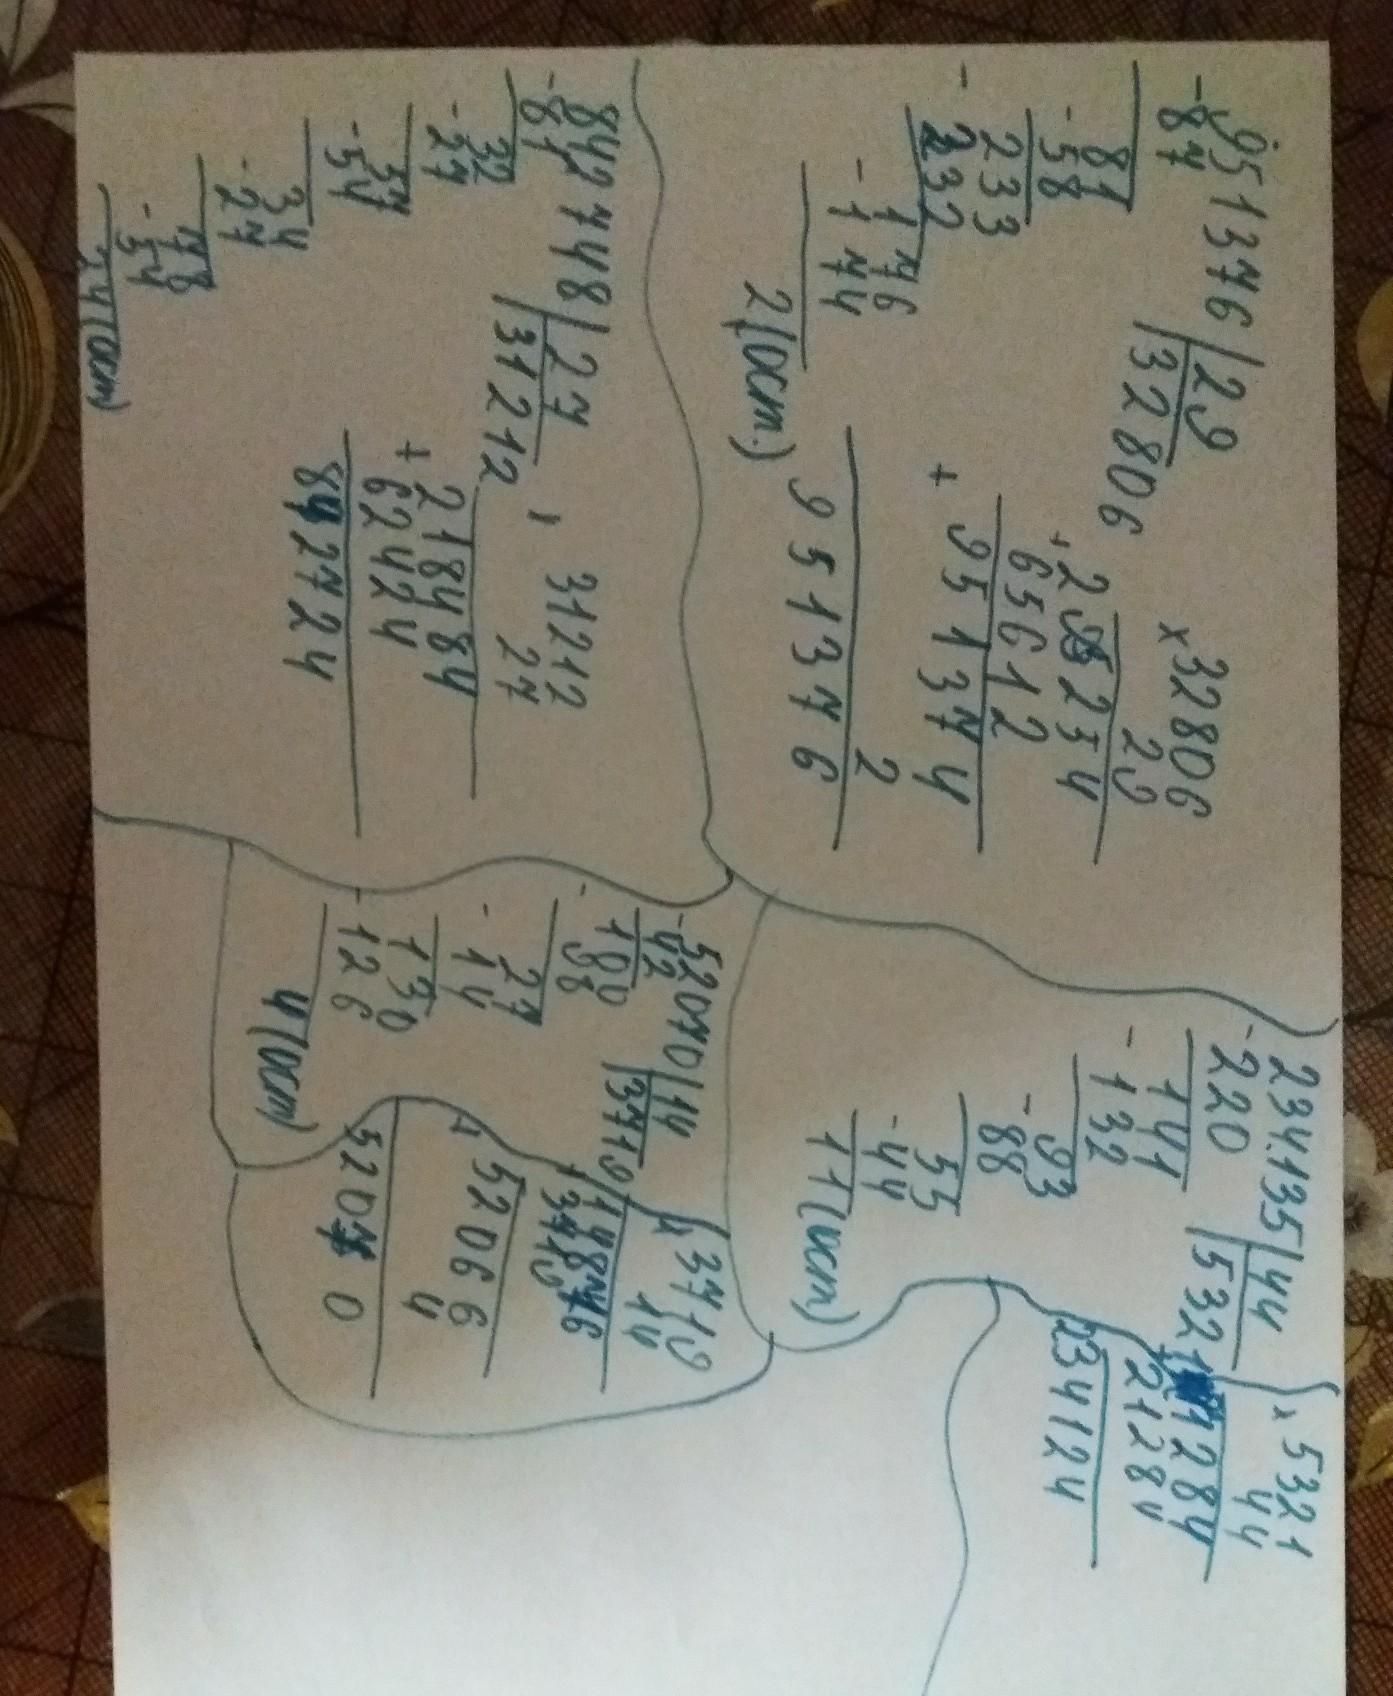 951376 | 29
- 87 | 32806
81
- 58
233
- 232
176
- 174
2 (ост.)
x 32806
29
+ 295254
65612
+ 951374
2
951376
842748 | 27
- 81 | 31212
32
- 27
57
- 54
34
- 27
78
- 54
24 (ост)
31212
27
+ 218484
62424
842724
234135 | 44
- 220 | 5321
141
- 132
93
- 88
55
- 44
11 (ост)
x 5321
44
+ 21284
21284
234124
52070 | 14
- 42 | 3719
100
- 98
27
- 14
130
- 126
4 (ост)
x 3719
14
+ 14876
3719
+ 52066
4
52070